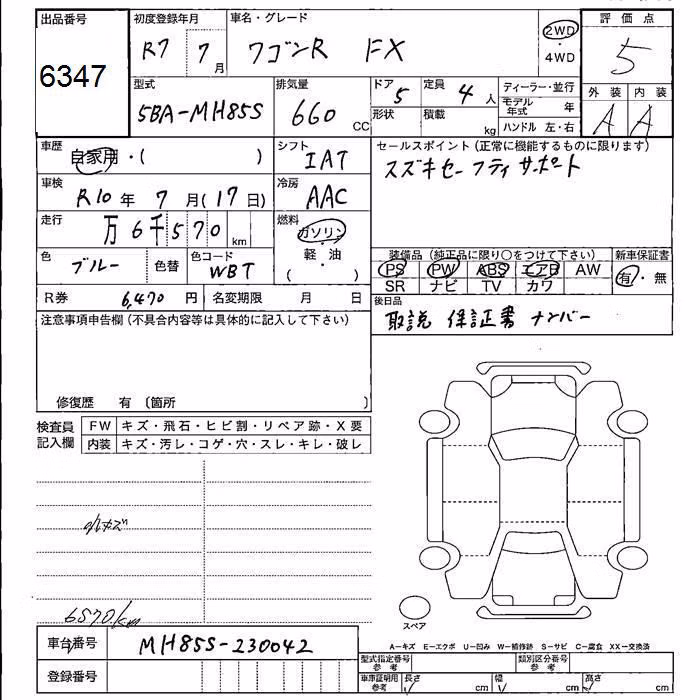 出品番号
6347
初度登録年月
R7 7月
車名・グレード
ワゴンR FX
2WD
・
4WD
評価点
5
外装 内装
A A
型式
5BA-MH85S
排気量
660 CC
ドア 5
形状
定員 4人
積載 kg
ディーラー・並行
モデル年式 年
ハンドル 左・右
車歴
自家用・( )
シフト
IAT
セールスポイント (正常に機能するものに限ります)
スズキセーフティサポート
車検
R10年 7月(17日)
冷房
AAC
走行
万6千570 km
燃料
ガソリン
・
軽・油
( )
色
ブルー
色替
色コード
WBT
装備品 (純正品に限り〇をつけて下さい)
PS PW ABS エアB AW
SR ナビ TV カワ
新車保証書
有・無
R券 6,470円
名変期限 月 日
後日品
取説 保証書 ナンバー
注意事項申告欄 (不具合内容等は具体的に記入して下さい)
修復歴 有 〔箇所 〕
検査員
記入欄
FW キズ・飛石・ヒビ割・リペア跡・X要
内装 キズ・汚レ・コゲ・穴・スレ・キレ・破レ
小キズ
6570km
スペア
A－キズ E－エクボ U－凹み W－補修跡 S－サビ C－腐食 XX－交換済
車台番号
MH85S-230042
登録番号
型式指定番号
参考
類別区分番号
参考
車庫証明用
参考
長さ cm
幅 cm
高さ cm